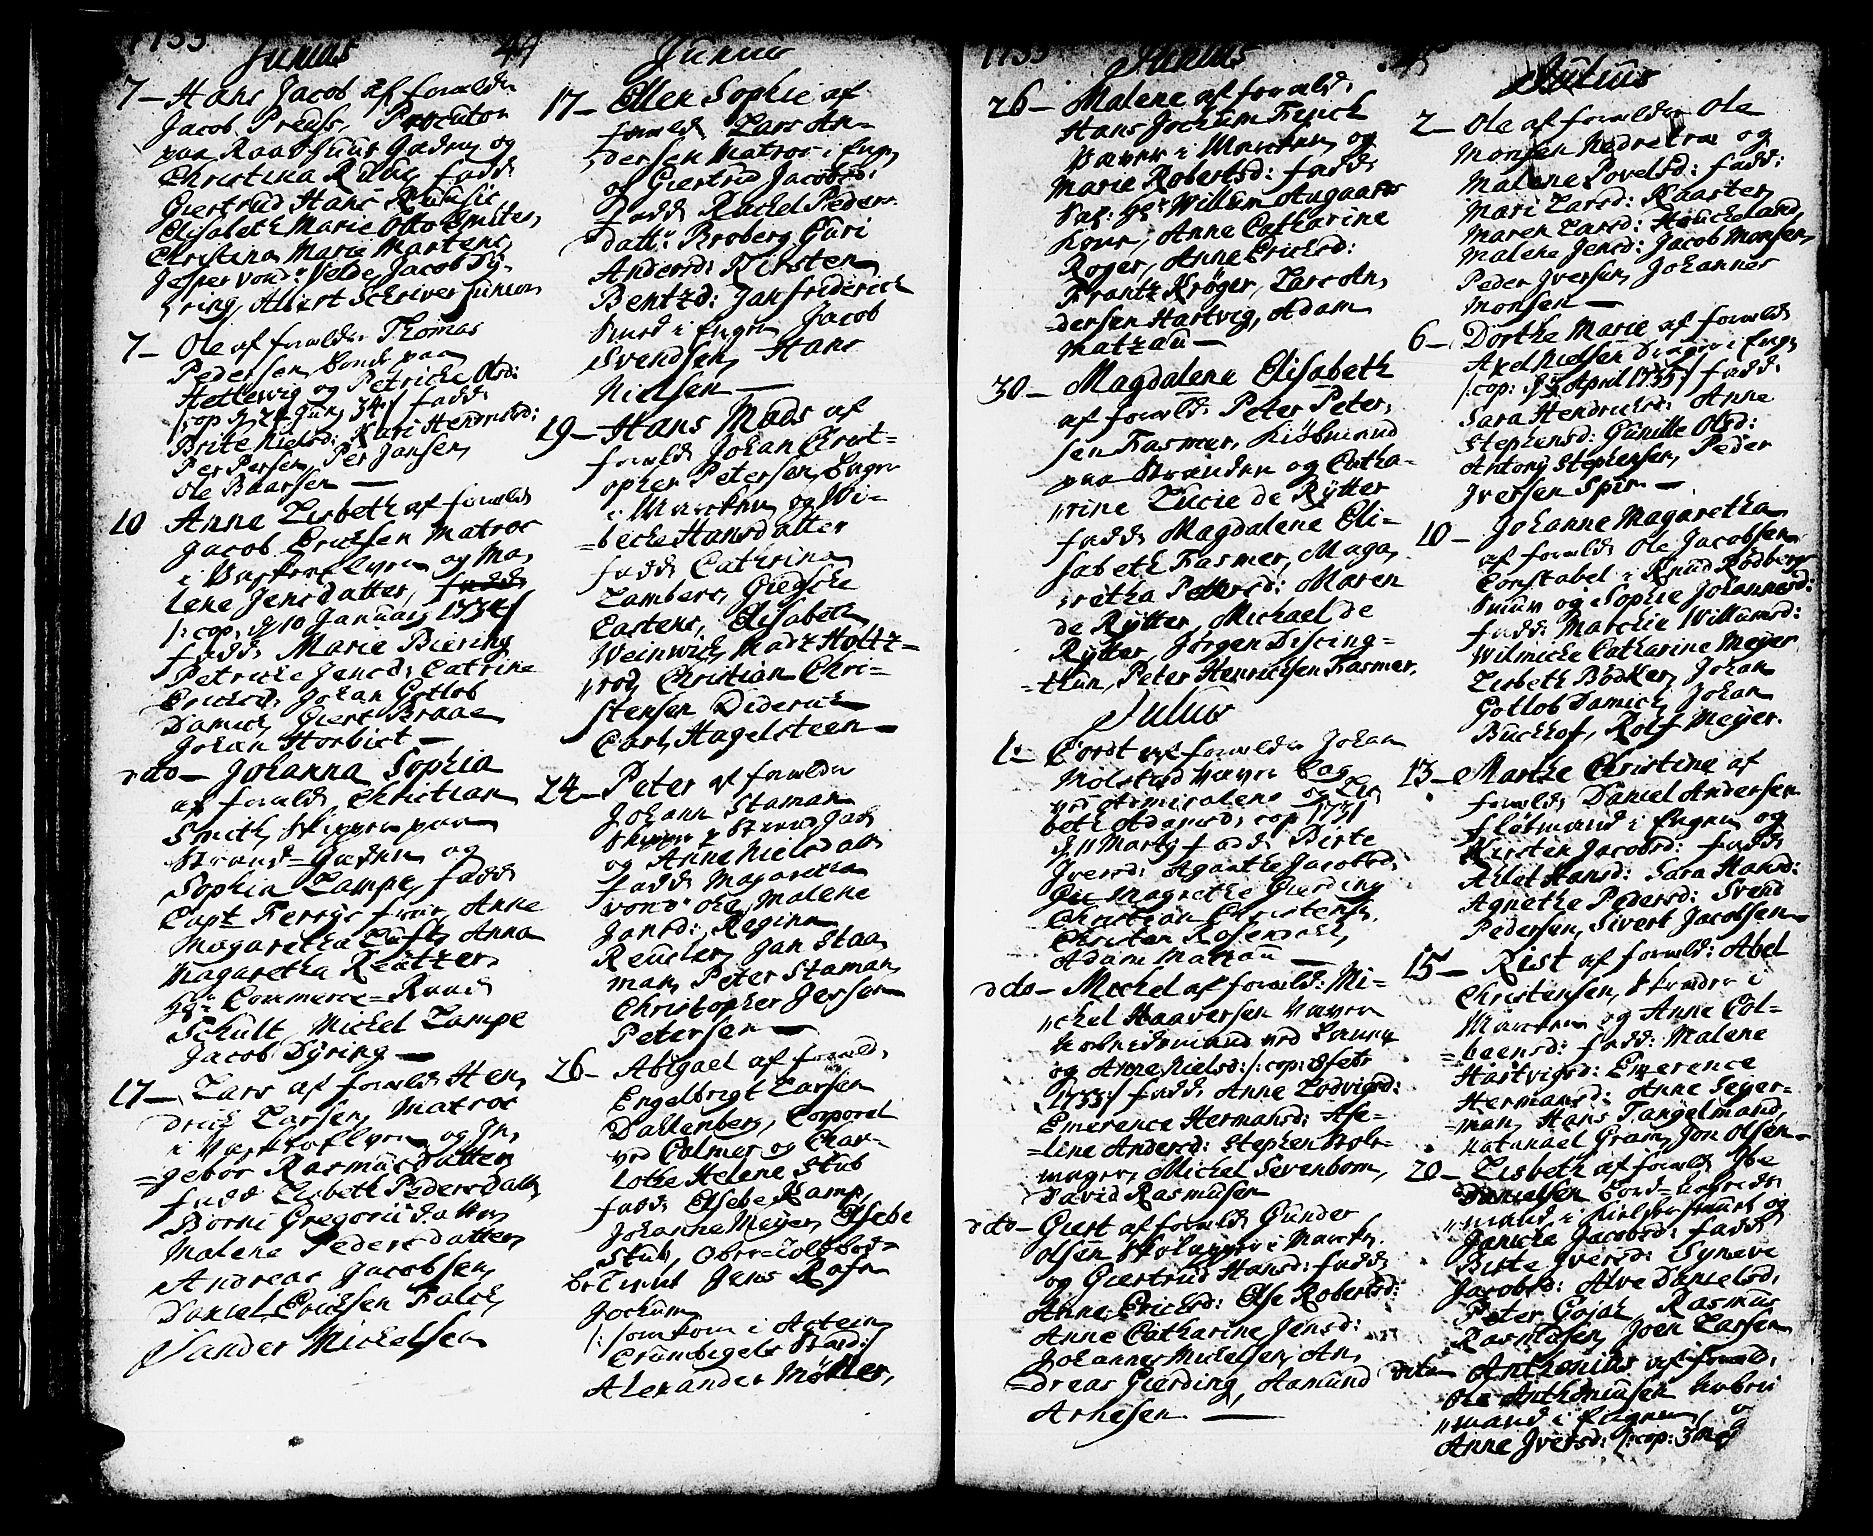 1735 Junius 44
7 – Hans Jacob af forældre
Jacob Preuss, Procutor
paa Raadhuus Gaden og
Christina fadd:
Giertrud Hans
Elisabeth Marie Otto Smiter,
Christina Marie Martens
Jesper vond: Velde, Jacob Dy-
ring, Albert Schriver Junior
7 – Ole af forældre Thomas
Pedersen bonde paa
Hetlewig og Petriche Olsd:
/:cop d 24 Jun 34:/ fadd:
Brite Nielsd: Kari Hendrichsd:
Per Persen, Per Jansen,
Ole Baarsen —
10 Anne Lisbeth af forældr
Jacob Erichsen Matros
i og Ma,
lene Jensdatter,
/:cop. d 10 Januarij 1734:/
fadd: Marie Biering
Petriche Jensd: Catrine
Erichsd: Johan Gotlob
Damich, Giert Braae
Johan Horbict —
dito – Johanna Sophia
af forældr Christian
Smith, Skipper paa
Strand=Gaden og
Sophia Lampe, fadd:
Capt: Ferrys frue, Anne
Magaretha Anna
Magaretha Reützer,
Hr Commerce=Raad
Schult, Michel Lampe
Jacob Dyring —
17 – Lars af forældr Hen,
drich Larsen, Matros
i og In,
=gebor Rasmusdatter
fadd Lisbeth Pedersdatt
Borni Gregorii datter,
Malene Pedersdatter,
Andreas Jacobsen,
Daniel Erichsen Falch,
Sander Michelsen
Junius
17 – Ellen Sophie af
forældr Lars An-
dersen Matros i Engen
og Giertrud Jacobsd:
fadd: Rachel Peders-
datt: Broberg Guri
Andersd: Kirsten
Bentzd: Jan friderich
Smed i Engen Jacob
Svendsen, Hans
Nielsen —
19 – Hans Mads af
forældr Johan Christ=
opher Petersen,
i Marcken og Wi-
=beche Hansdatter
fadd: Cathrina
Lambers, Giedsche
Castens, Elisabeth
Weinwich, Madz Holtz=
rod, Christian Chri-
stensen Diderich
Carl, Hagelsteen —
24 – Peter af forældre
Johann Staman
Skipper p Strand Gad
og Anne Nielsdatt
fadd: Magaretha
vond: Malene
Jansd: Regina
Reucler, Jan Staa
man, Peter Staman,
Christopher Jessen
Petersen —
26 – Abigael af forældr
Engelbrigt Larsen
Dallenberg, Corporal
ved Calmer og Char-
lotte Helene Stub
fadd: Elsebe Kamp,
Johanne Meyer, Elsebe
Stub,
Jens Rafn
Jochum
/:som kom i Astein
Crumbigels Stæd:/
Alexander Møller,
1735 Junius 45
26 – Malene af forældr:
Hans Jochum Fenck
Væver i Marcken og
Marie Robertsd: fadd:
Sal: Hr Willum Augaards
Kone, Anne Catharine
Roger, Anne Erichsd:
Frantz Krøger, Lars An,
dersen Hartvig, Adam
Matzau —
30 – Magdalene Elisabeth
af forældr Peter Peter,
sen Fasmer, Kiøbmand
paa Stranden og Catha-
rine Lucie de Rytter
fadd: Magdalene Eli-
sabeth Fasmer, Maga,
retha Petersd: Maren
de Rytter, Michael de
Rytter, Jørgen Discing=
=thun, Peter Henrichsen Fasmer.
Julius
1 – Cordt af forældre Johan
Molsted Væver
ved Admiralens og Lis,
beth Adamsd: cop 1731
d 11 Martj fadd: Birte
Iversd: Aganthe Jacobsd:
Magrethe Gierding
Christian Christensen,
Christen Rosendahl,
Adam Matzau —
dito – Michel af foræld: Mi=
chel Haaversen Væver
ved
og Anne Nielsd: /:cop: d febr
1733:/ fadd: Anne Lodvigsd:
Emerence Hermansd: Ase=
=line Andersd: Stephen
mager, Michel Sevenbom,
David Rasmusen
dito – Giert af forældr Gunder
Olsen Skolager i Marck.
og Giertrud Hansd: fadd:
Anne Erichsd: Else Robertsd:
Anne Catharine Jensd:
Johannes Michelsen, An,
=dreas Gierding, Aamund
Arnesen —
Julius
2 – Ole af forældre Ole
Monsen Nedretræ og
Malene Povelsd: fadd:
Mari Larsd: Raaster,
Maren Larsd: Houcheland,
Malene Jensd: Jacob Monsen,
Peder Iversen, Johannes
Monsen —
6 – Dorthe Marie af forældr
Axel Nielsen Drager i Engen
/:cop: d 3 April 1735:/ fadd:
Sara Hendrichsd: Anne
Stephensd: Gunille Olsd:
Antony Stephensen, Peder
Iversen Spir —
10 – Johanne Magaretha
af forældr Ole Jacobsen
Constabel i Knud Rødbergs
Smuw og Sophie Johannesd:
fadd: Marchie Willumsd:
Wilmicke Catharine Meyer
Lisbeth Bødker, Johan
Gotlob Damich, Johan
Buckhof, Rolf Meyer.
13 – Marthe Christine af
forældr Daniel Andersen
fløtmand i Engen og
Kirsten Jacobsd: fadd:
Adlet Hansd: Sara Hansd:
Agnethe Pedersd: Svend
Pedersen, Sivert Jacobsen —
15 – Rist af foræld: Abel
Christensen, Skræder i
Marcken og Anne Col=
=beensd: fadd: Malene
Hartvigsd: Emerence
Hermansd: Anne Seger=
=man, Hans Tangelmand,
Natanael Gram, Jon Olsen —
20 – Lisbeth af forældr Ibe
Danielsen bord=
mand i og
Janicke Jacobsd: fadd:
Birte Iversd: Syneve
Jacobsd: Alve Danielsd,
Peter Gojah, Rasmus
Rasmusen, Joen Larsen
dito Anthonius af forældr:
Ole Anthoniusen
mand i Engen, o
Anne Iversd: /:cop: 3